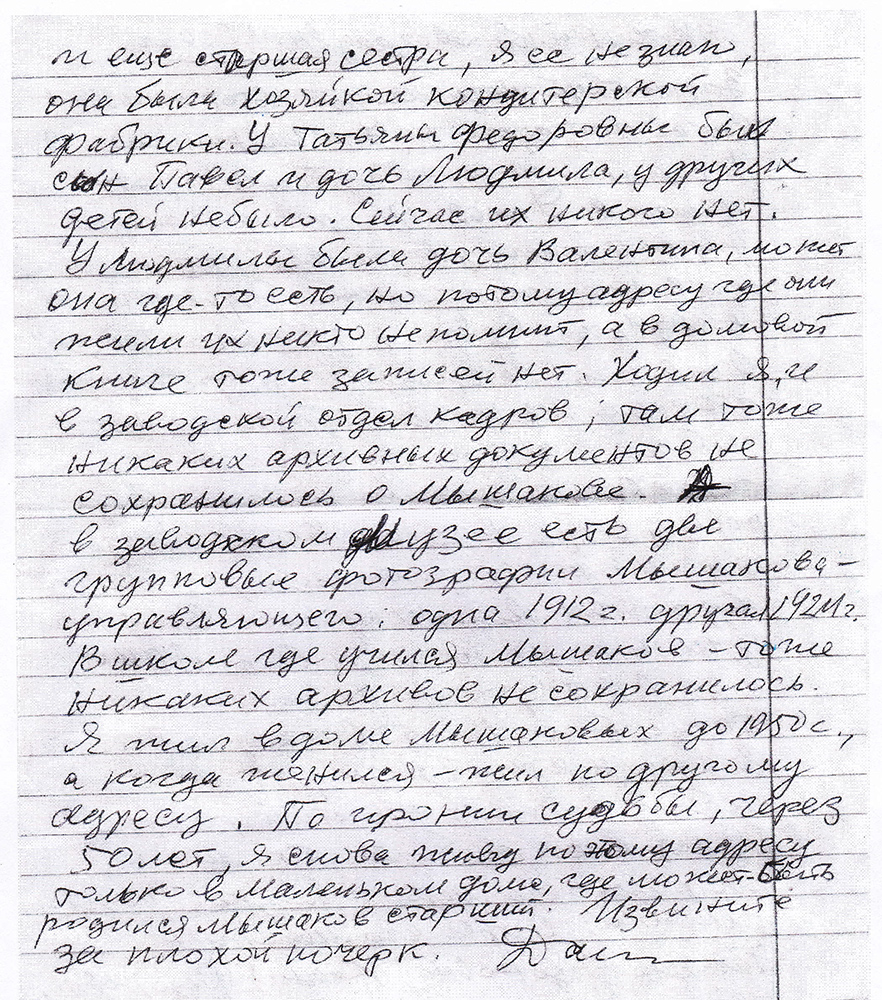 и еще старшая сестра, я ее не знаю,
она была хозяйкой кондитерской
фабрики. У Татьяны Федоровны был
сын Павел и дочь Людмила, у других
детей небыло. Сейчас их никого нет.
У Людмилы была дочь Валентина, может
она где-то есть, но потому адресу где они
жили их никто не помнит, а в домовой
книге тоже записей нет. Ходил я, и
в заводской отдел кадров; там тоже
никаких архивных документов не
сохранилось о Мышакове.
в заводском музее есть две
групповые фотографии Мышакова -
управляющего: одна 1912 г. другая г.
В школе где учился Мышаков - тоже
никаких архивов не сохранилось.
Я жил в доме Мышаковых до 1950 г.,
а когда женился - жил по другому
адресу. По иронии судьбы, через
50 лет, я снова живу по этому адресу
только в маленьком доме, где может-быть
родился Мышаков старший. Извините
за плохой почерк.